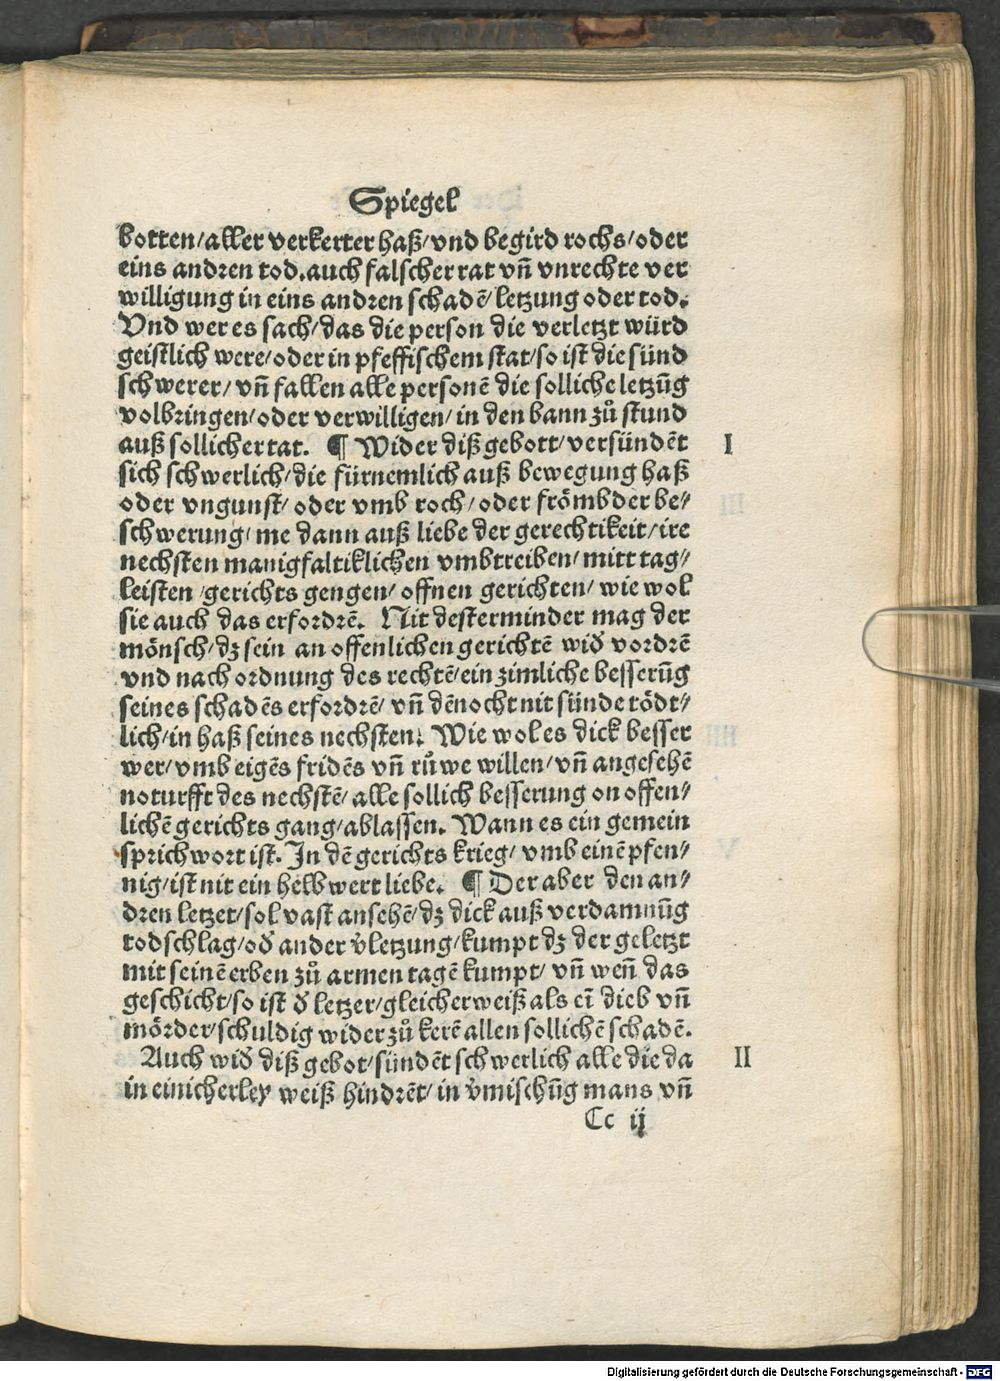 Spiegel
botten/aller verkerter haß/vnd begird rochs/oder
eins andren tod.auch falscher rat vñ vnrechte ver
willigung in eins andren schadē/letzung oder tod.
Vnd wer es sach/das die person die verletzt würd
geistlich were/oder in pfeffischem stat/so ist die sünd
schwerer/vñ fallen alle personē die solliche letzūg
volbringen/oder verwilligen/in den bann zů stund
auß sollicher tat. ¶ Wider diß gebott/versündēt I
sich schwerlich/die fürnemlich auß bewegung haß
oder vngunst/oder vmb roch/oder frömbder be/
schwerung/me dann auß liebe der gerechtikeit/ire
nechsten manigfaltiklichen vmbtreiben/mitt tag/
leisten/gerichts gengen/offnen gerichten/wie wol
sie auch das erfordrē. Nit desterminder mag der
mönsch/dz sein an offenlichen gerichtē widͤ vordrē
vnd nach ordnung des rechtē/ein zimliche besserūg
seines schadēs erfordrē/vñ dēnocht nit sünde tödt/
lich/in haß seines nechsten. Wie wol es dick besser
wer/vmb eigēs fridēs vñ růwe willen/vñ angesehē
noturfft des nechstē/alle sollich besserung on offen/
lichē gerichts gang/ablassen. Wann es ein gemein
sprichwort ist. In dē gerichts krieg/vmb einē pfen/
nig/ist nit ein helbwert liebe. ¶ Der aber den an/
dren letzet/sol vast ansehē/dz dick auß verdamnūg
todschlag/odͤ ander v̓letzung/kumpt dz der geletzt
mit seinē erben zů armen tagē kumpt/vñ wen̄ das
geschicht/so ist dͤ letzer/gleicherweiß als eī dieb vñ
mörder/schuldig wider zů kerē allen sollichē schadē.
Auch widͤ diß gebot/sündēt schwerlich alle die da II
in einicherley weiß hindrēt/in v̓mischūg mans vñ
Cc ij
Digitalisierung gefördert durch die Deutsche Forschungsgemeinschaft - DFG